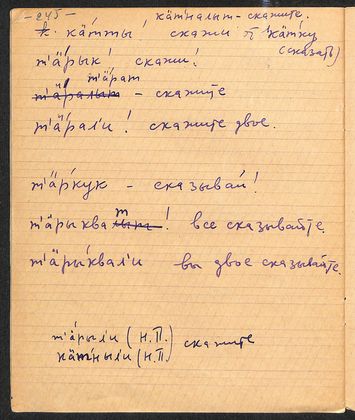 -245-
кӓтналыт-скажите.
кӓтты! скажи кӓтку
(сказать)
тӓ́рык! скажи!
тӓ́рат
тӓ́ралыт - скажите
тӓ́рал'и! скажите двое.
тӓ́ркук - сказывай!
т
тӓ́рыквалыт! все сказывайте.
тӓ́рыквал'и вы двое сказывайте.
тӓ́рыл'и (Н.П.) скажите
кӓтныл'и (Н.П.)